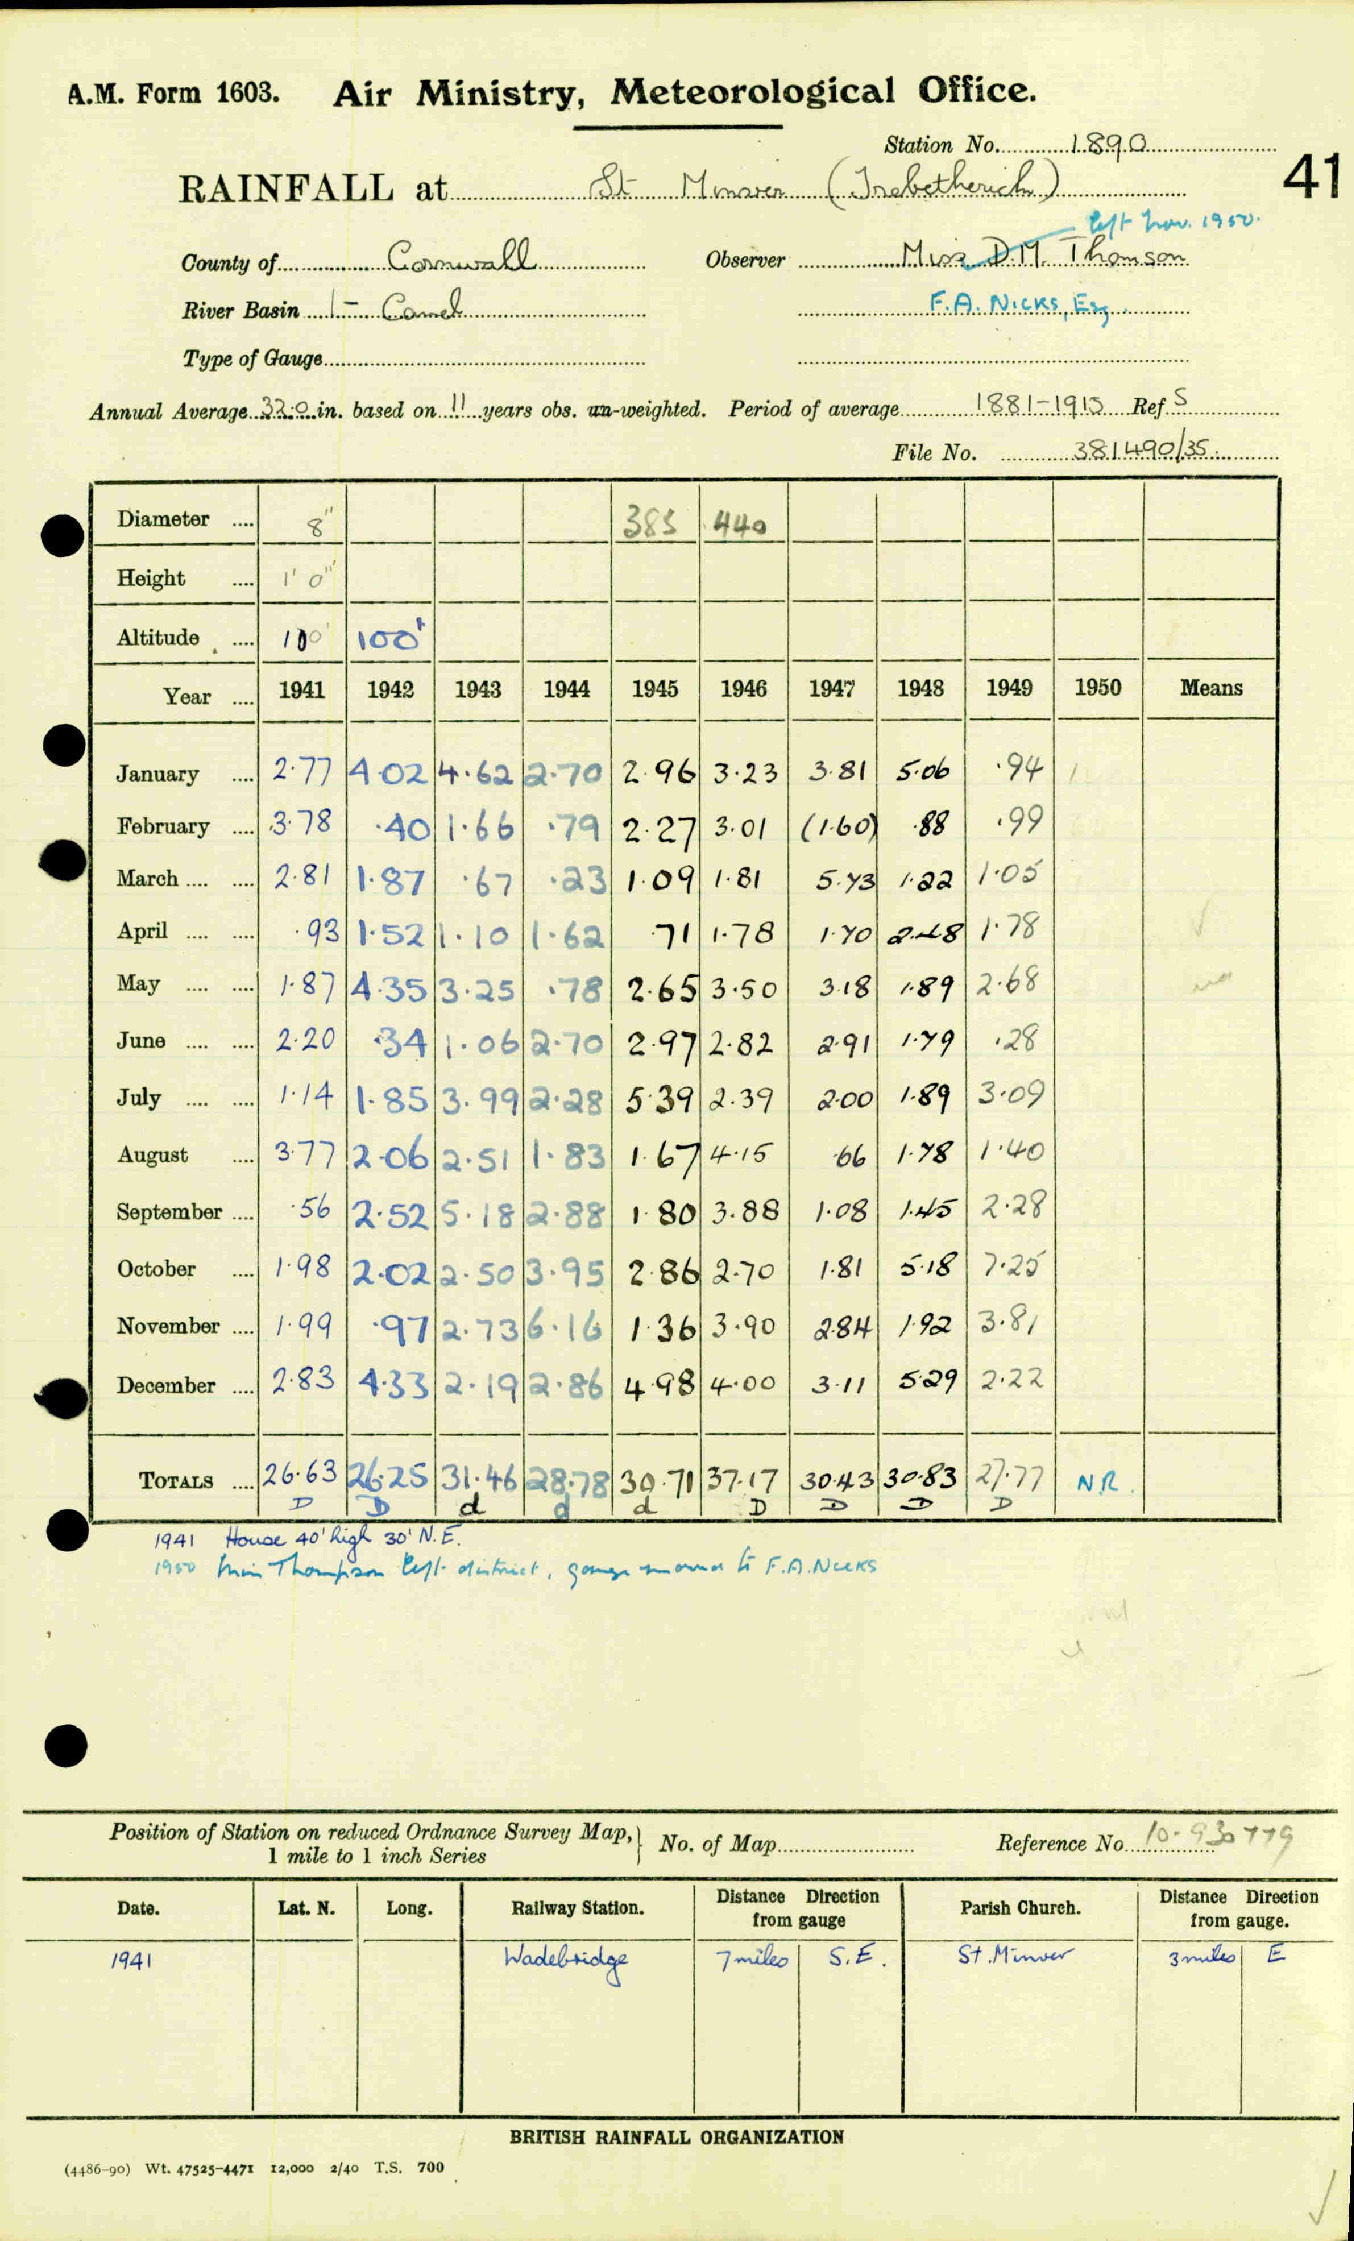 A.M. Form 1603. Air Ministry, Meteorological Office.
Station No. 1890
41
RAINFALL at St Minver (Trebetherick)
left Nov. 1950.
County of Cornwall Observer Miss D.M. Thomson
River Basin 1 - Camel F.A. NICKS, Esq.
Type of Gauge
Annual Average 32.0 in. based on 11 years obs. un-weighted. Period of average 1881-1915 Ref S
File No. 381490/35
Diameter .... 8" 385 440
Height .... 1' 0"
Altitude .... 100' 100'
Year .... 1941 1942 1943 1944 1945 1946 1947 1948 1949 1950 Means
January .... 2.77 4.02 4.62 2.70 2.96 3.23 3.81 5.06 .94
February .... 3.78 .40 1.66 .79 2.27 3.01 (1.60) .88 .99
March .... .... 2.81 1.87 .67 .23 1.09 1.81 5.73 1.22 1.05
April .... .... .93 1.52 1.10 1.62 .71 1.78 1.70 2.48 1.78
May .... .... 1.87 4.35 3.25 .78 2.65 3.50 3.18 1.89 2.68
June .... .... 2.20 .34 1.06 2.70 2.97 2.82 2.91 1.79 .28
July .... .... 1.14 1.85 3.99 2.28 5.39 2.39 2.00 1.89 3.09
August .... 3.77 2.06 2.51 1.83 1.67 4.15 .66 1.78 1.40
September .... .56 2.52 5.18 2.88 1.80 3.88 1.08 1.45 2.28
October .... 1.98 2.02 2.50 3.95 2.86 2.70 1.81 5.18 7.25
November .... 1.99 .97 2.73 6.16 1.36 3.90 2.84 1.92 3.81
December .... 2.83 4.33 2.19 2.86 4.98 4.00 3.11 5.29 2.22
TOTALS .... 26.63 26.25 31.46 28.78 30.71 37.17 30.43 30.83 27.77 N.R.
D D d d d D D D D
1941 House 40' high 30' N.E.
1950 Miss Thompson left district, gauge moved to F.A. NICKS
Position of Station on reduced Ordnance Survey Map, } No. of Map Reference No. 10-930779
1 mile to 1 inch Series
Date. Lat. N. Long. Railway Station. Distance Direction from gauge Parish Church. Distance Direction from gauge.
1941 Wadebridge 7 miles S.E. St. Minver 3 miles E
BRITISH RAINFALL ORGANIZATION
(4486-90) Wt. 47525-4471 12,000 2/40 T.S. 700